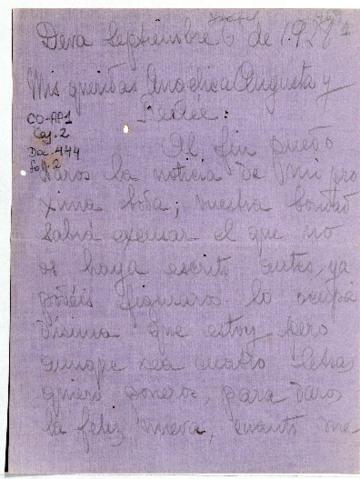 Deva Septiembre 6 de 1.928
Mis queridas Angélica Augusta y
CO-AP1
Caj. 2
Doc. 444
Fol. 2
Al fin puedo
daros la noticia de mi pro
xima boda; vuestra bondad
sabrá excusar el que no
os haya escrito antes, ya
podéis figuraros lo ocupa
disima que estoy, pero
aunque sea cuatro letras
quiero poneros, para daros
la feliz nueva, cuanto me